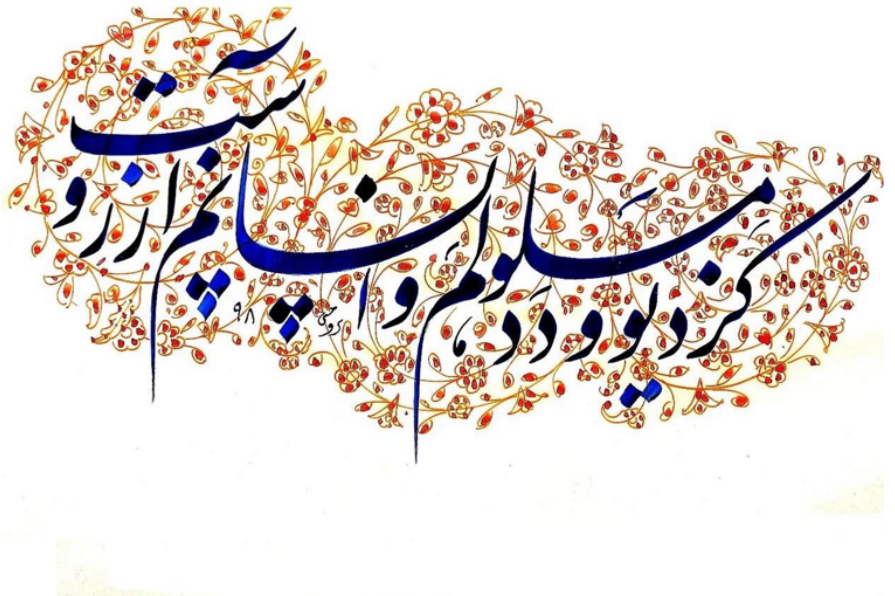 کز دیو و دد ملولم و انسانم آرزوست
۹۸